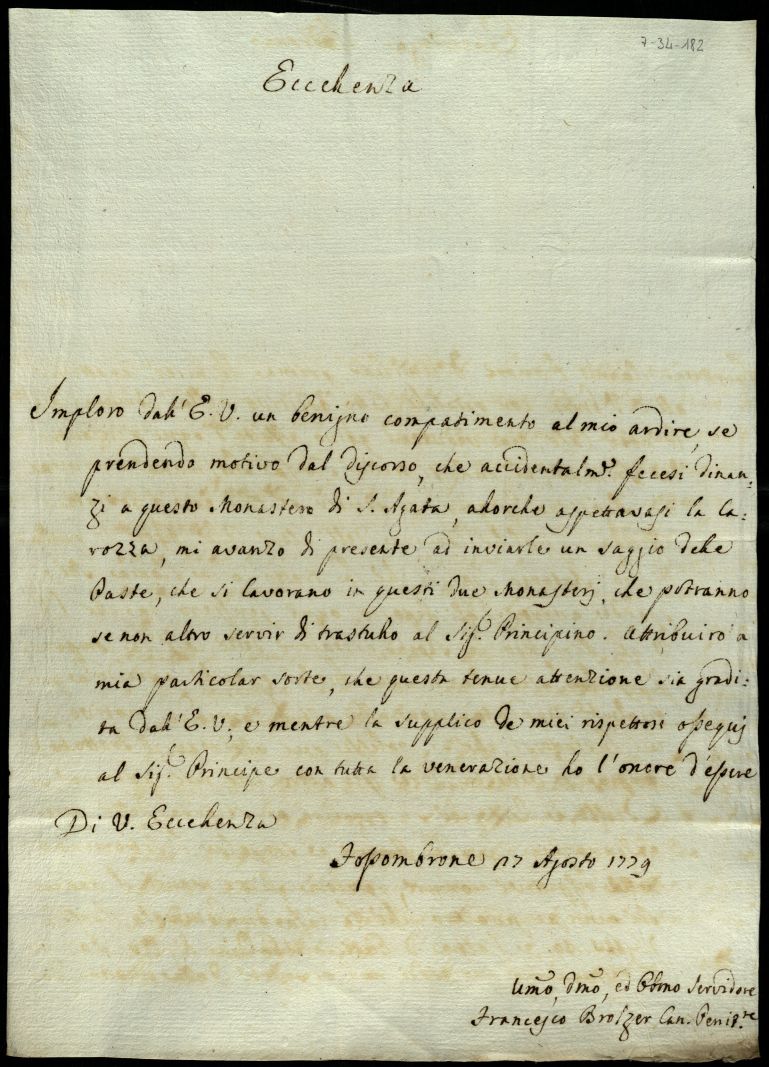 7-34-182
Eccellenza
Imploro dall' E. V. un benigno compatimento al mio ardire, se
prendendo motivo dal discorso, che accidentalm.e fecesi dinan:
zi a questo Monastero di S. Agata, allorche aspettavasi la Ca:
rozza, mi avanzo di presente ad inviarle un saggio delle
Paste, che si lavorano in questi due Monasterj, che potranno
se non altro servir di trastullo al Sig.r Principino. Attribuirò a
mia particolar sorte, che questa tenue attenzione sia gradi:
ta dall' E. V., e mentre la supplico de miei rispettosi ossequj
al Sig.r Principe con tutta la venerazione ho l'onore d'essere
Di V. Eccellenza
Fossombrone 17 Agosto 1779
Umo, Dmo, ed Obbmo Servidore
Francesco Can. Penit.re